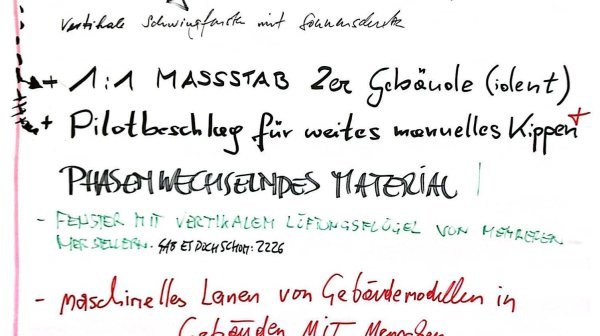 Vertikale Schwingfenster mit Sonnenschutz
+ 1:1 MASSSTAB 2er Gebäude (ident)
+ Pilotbeschlag für weites manuelles Kippen +
PHASENWECHSELNDES MATERIAL
- FENSTER MIT VERTIKALEM LÜFTUNGSFLÜGEL VON MEHREREN
HERSTELLERN. GAB ET DOCH SCHON: 2226
- Maschinelles Lernen von Gebäudemodellen in
Gebäuden MIT Menschen